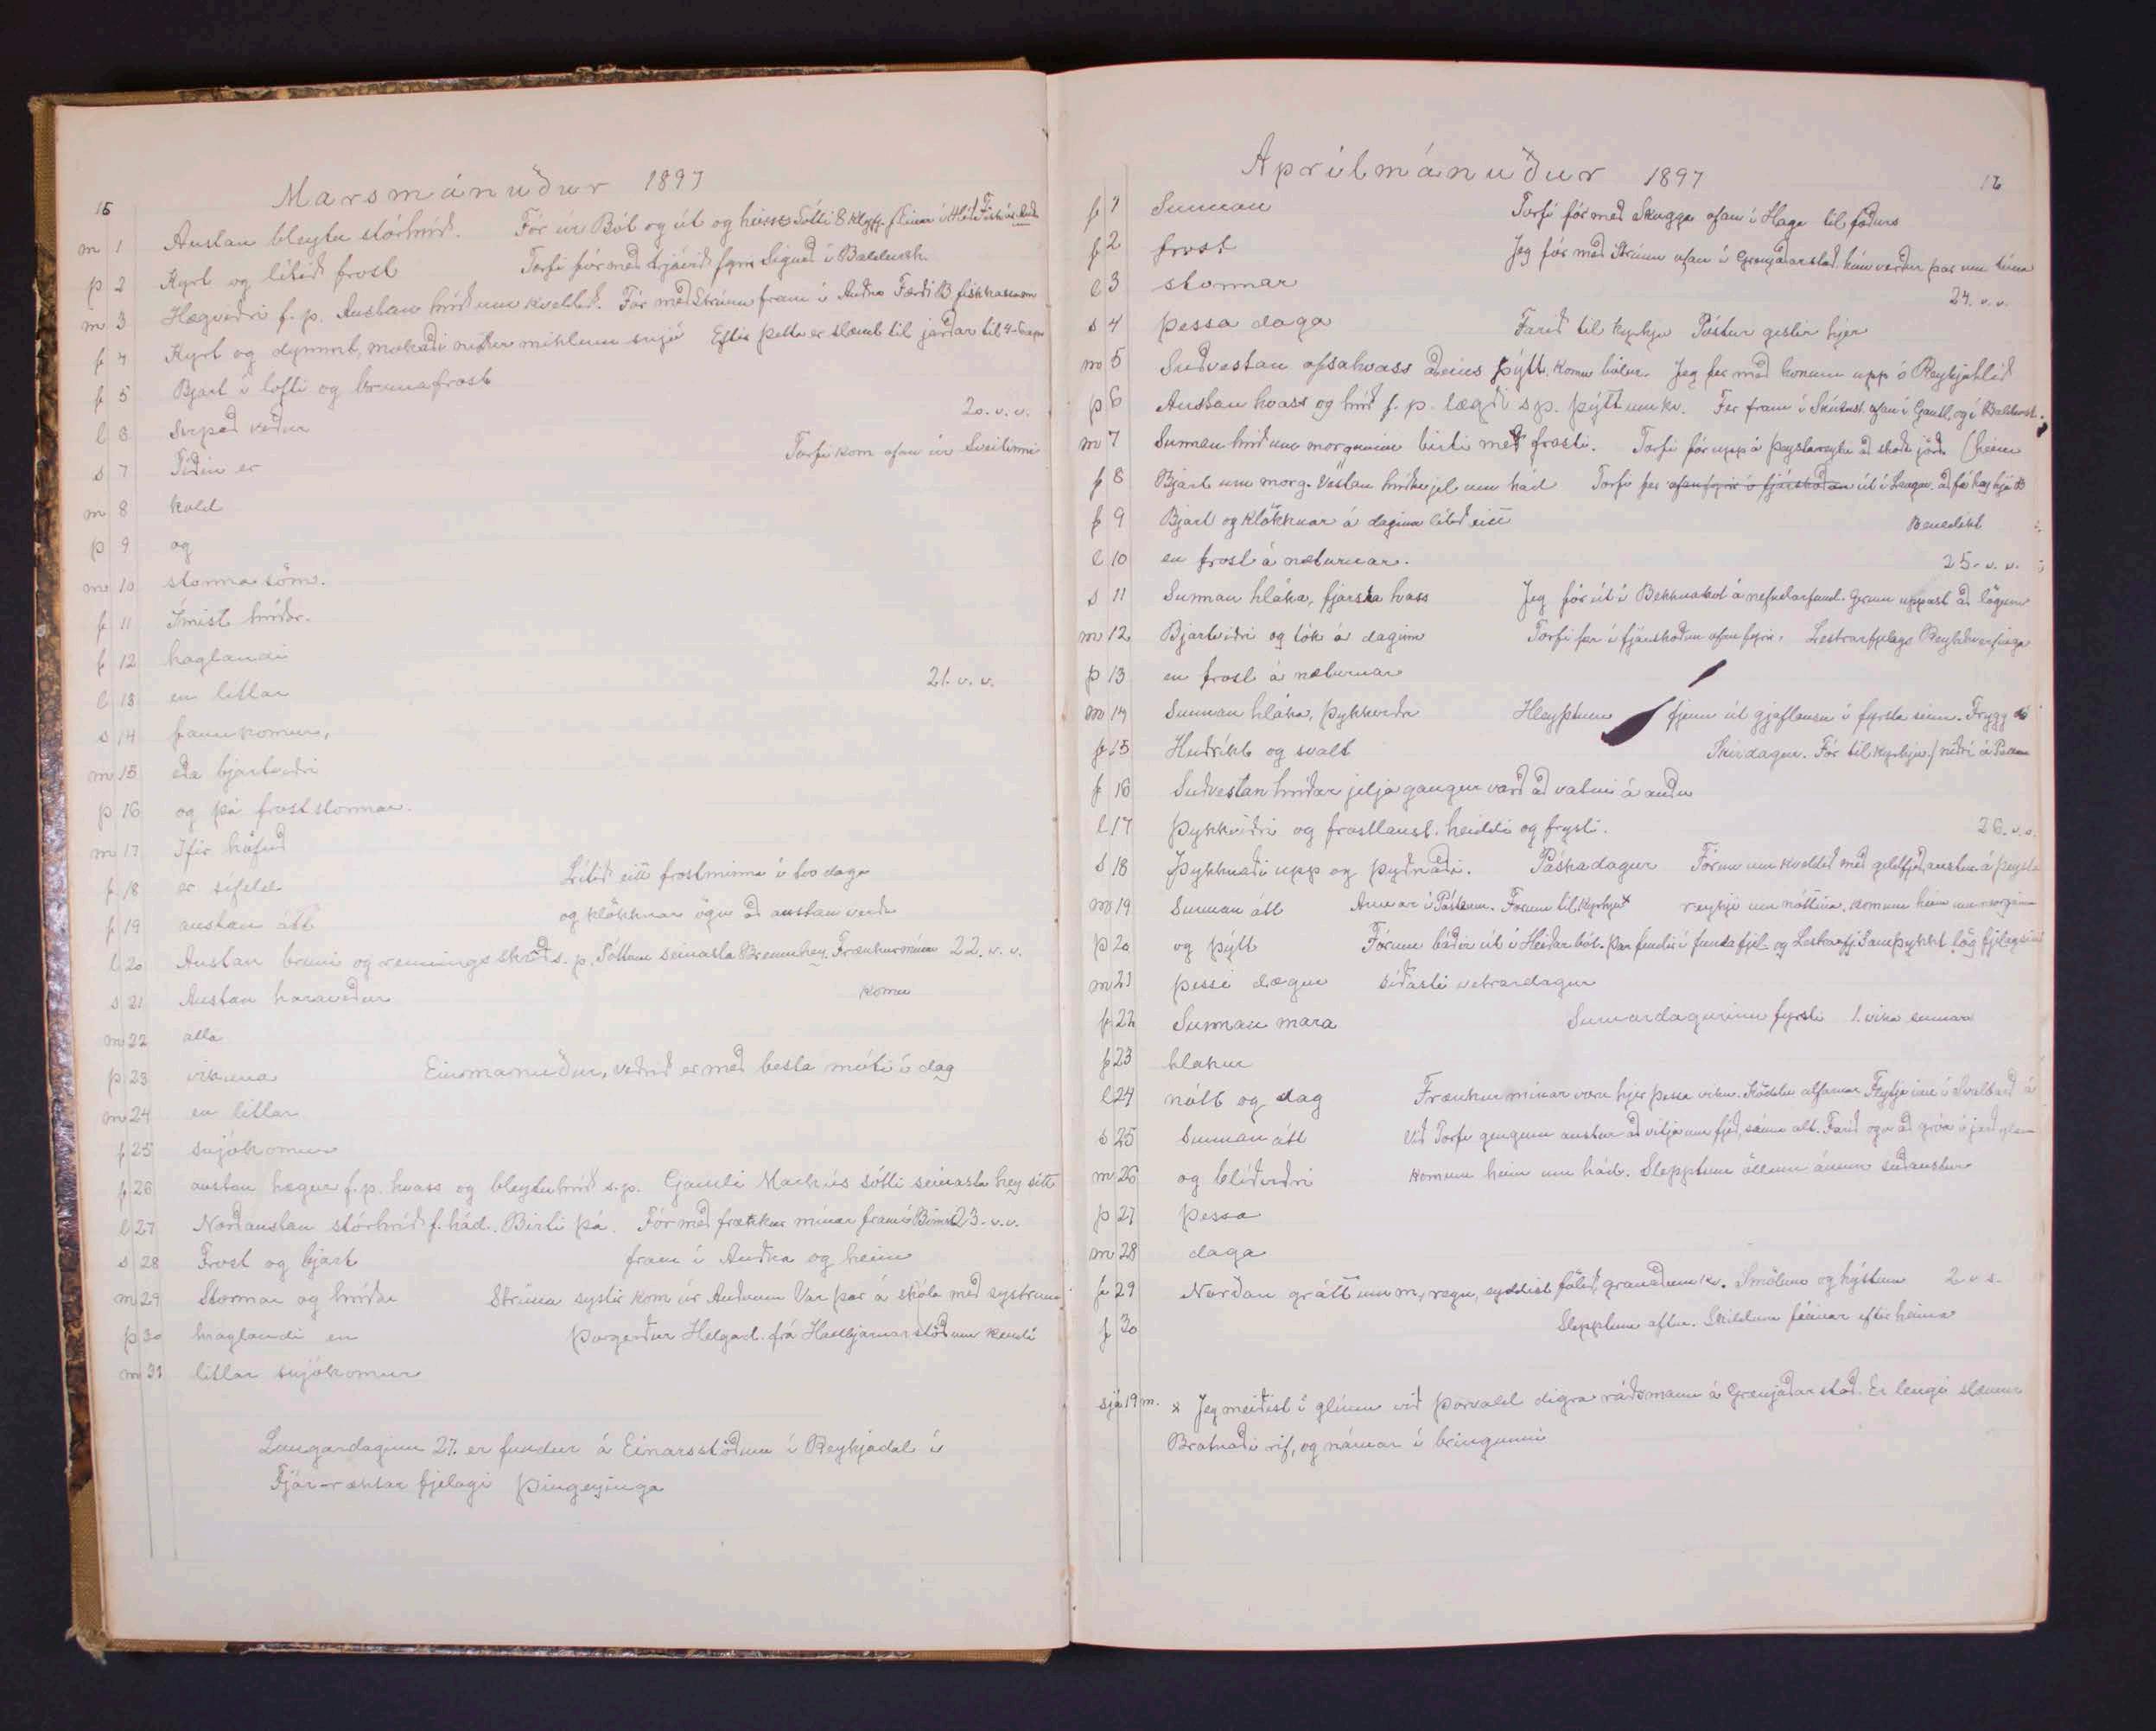 15
Marsmánuður 1897
m 1 Austan bleytu stórhríð. Fór úr Ból og út og heim Sótti 8
þ 2 Kyrt og lítið frost Torfi fór með fyrir Sigurð í
m 3 Hægviðri f. p. Austan hríð um kveldið. Fór með Strúnu fram í Auðna Færði B
f 4 Kyrt og dymmt, mokaði niður miklum snjó Eftir þetta er slæmt til jarðar til
f 5 Bjart í lofti og brunafrost
l 6 Svipað veður 20. v. v.
s 7 Tíðin er Torfi kom ofan úr Sveitinni
m 8 kald
þ 9 og
m 10 stormasöm.
f 11 Ímist hríðar.
f 12 haglandi
l 13 en litlar 21. v. v.
s 14 fannkomur,
m 15 eða bjartviðri
þ 16 og þá froststormar.
m 17 Ifir höfuð
f 18 er sífeld Lítið eitt frostminna í tvo daga
f 19 austan átt og klökknar ögn að austan verðu
l 20 Austan bruni og rennings skrið s. p. Sóttum seinasta Brennhey. Frænkur mínar 22. v. v.
s 21 Austan haraveður komu
m 22 alla
þ 23 vikuna Einmanuður, veðrið er með besta móti í dag
m 24 en litlar
f 25 snjókomur
f 26 austan hægur f. p. hvass og bleytuhríð s. p. Gamli Markús sótti seinasta hey sitt
l 27 Norðaustan stórhríð f. hád. Birti þá. Fór með frækkur mínar fram í 23. v. v.
s 28 Frost og bjart fram í Auðna og heim
m 29 Stormar og hríðar Strúna systir kom úr Auðnum Var þar á skóla með systrum
þ 30 hraglandi en Þorgerður Helgad. frá Hallbjarnarstöðum kendi
m 31 litlar snjókomur
Laugardaginn 27. er fundur á Einarsstöðum í Reykjadal í
Fjár-ræktar fjelagi Þingeyinga
16
Aprílmánuður 1897
f 1 Sunnan Torfi fór með Skugga ofan í Haga til föðurs
f 2 frost Jeg fór með Strúnu ofan í Grenjaðarstað. hún verður þar um tíma
l 3 stormar 24. v. v.
s 4 þessa daga Farið til kyrkju Póstur gestir hjer
m 5 Suðvestan ofsahvass aðeins þýtt. Jeg fer með honum upp í Reykjahlíð
þ 6 Austan hvass og hríð f. p. lægði s p. þýtt um kv. Fer fram í Skútust. ofan í Gautl. og í
m 7 Sunnan hríð um morguninn birti með frosti. Torfi fór upp á Þeystareyki að skoða jörð (heim
f 8 Bjart um morg. Vestan hríðarjel um hád Torfi fer ofan fyrir í fjárskoðun út í að fá hey hjá
f 9 Bjart og klökknar á daginn lítið eitt Benedikt
l 10 en frost á næturnar. 25. v. v.
s 11 Sunnan hláka, fjarska hvass Jeg fór út í Bekknakot á nefndarfund. Gerum uppast að lögum
m 12 Bjartviðri og tók á daginn Torfi fer í fjárskoðun ofan fyrir. Lestrarfjelags Reykhverfinga
þ 13 en frost á næturnar
m 14 Sunnan hláka, þykkviðri Hleyptum fjenu út gjaflausu í fyrsta sinn. Trygg
f 15 Huðrikt og svalt Skírdagur. Fór til kyrkju
f 16 Suðvestan hríðar jeljagangur varð að vatni á auðu
l 17 Þykkviðri og frostlaust. heiddi og frysti. 26. v. v.
s 18 Þykknaði upp og þyðnaði. Páskadagur Fórum um kveldið með geldfjeð austur á Þeysta
m 19 Sunnan átt Annar í Páskum. Forum til kyrkju x reyki um nóttina, komum heim um morgun
þ 20 og þýtt Fórum báðir út í Heiðarból. þar fundir í fundafjel og Lestrarfj Samþykkt lög fjelagsins
m 21 þessi dægur síðasti vetrardagur
f 22 Sunnan mara Sumardagurinn fyrsti 1. vika sumars
f 23 hlákur
l 24 nótt og dag Frænkur mínar voru hjer þessa viku. Kvöddu alfarnar Flytja inn í Svalbarð á
s 25 Sunnan átt Við Torfi gengum austur að vitja um fjeð, sáum alt. Farið ögn að gróa í jarðylnum
m 26 og blíðviðri komum heim um hád. Slepptum öllum ánum suðaustur
þ 27 þessa
m 28 daga
f 29 Norðan grátt um m, regn, eyddist fölið, granaðum kv. Smölum og hýstum 2 v s.
f 30 Slepptum aftur. Skildum eftir heima
sjá 19 m. x Jeg meiðist í glímu við Þorvald digra ráðsmann á Grenjaðarstað. Er lengi slæmur
Brotnaði rif, og nárnar í bringunni